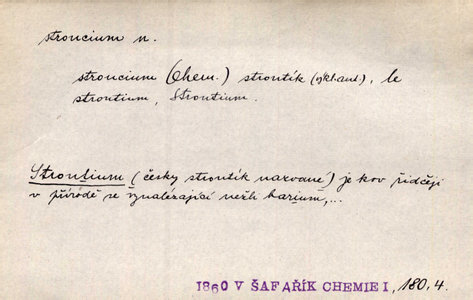 stroncium n.
stroncium (Chem.) strontík (obchod.), le
strontium, Strontium.
Strontium (česky strontík nazvané) je kov řidčeji
v přírodě se vynalézající nežli barium,...
1860 V ŠAFAŘÍK CHEMIE I, 180,4.